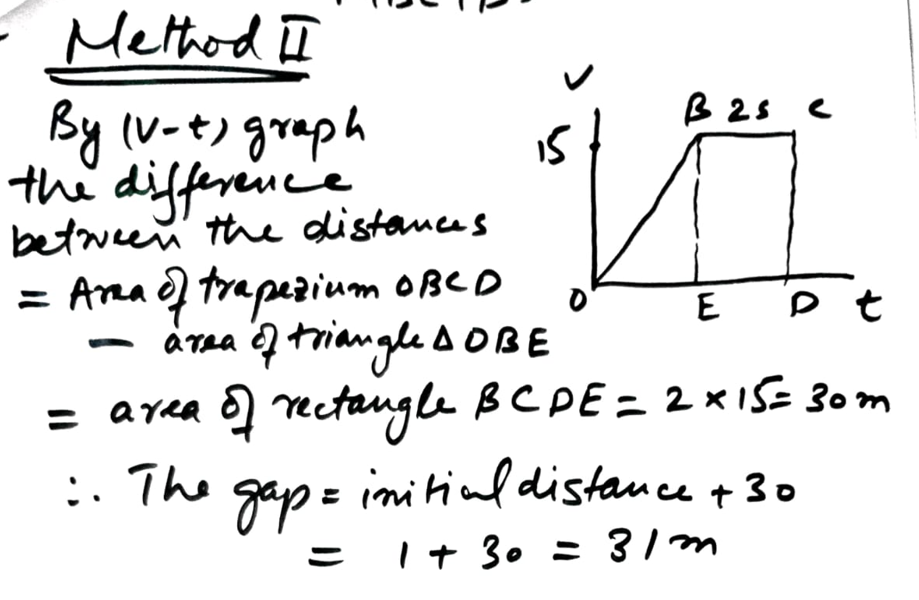 Method II
By (v-t) graph
the difference
between the distances
= Area of trapezium OBCD
— area of triangle Δ OBE
= area of rectangle BCDE = 2 × 15 = 30 m
∴ The gap = initial distance + 30
= 1 + 30 = 31 m
V
15
B 2s C
O E D t